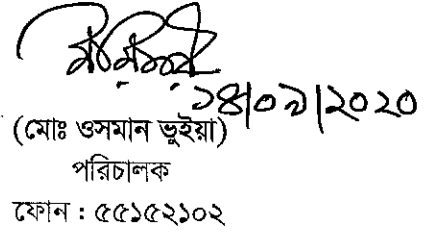 ১৪/০৯/২০২০
(মোঃ ওসমান ভূইয়া)
পরিচালক
ফোন : ৫৫১৫২১০২